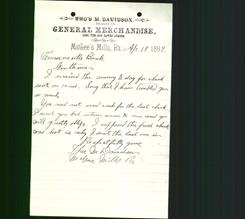 THO'S M. DAVIDSON,
GENERAL MERCHANDISE,
McGee's Mills, Pa. Apr 18 1892
Bank
Gentlemen
I received the money to day for check
sent on said. Sorry that I have troubled you
so much.
You need not send for the last check
I sent you but return same to me and you
will greatly oblige. I supposed the first check
was lost is why I sent the last one in.
Respectfully yours
Tho M Davidson
McGees Mills Pa